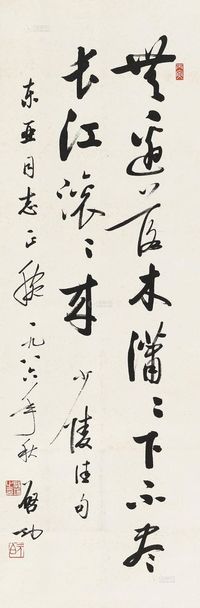 无边落木萧萧下不尽
长江滚滚来
少陵佳句
东亚同志正腕
一九八六年秋
启功